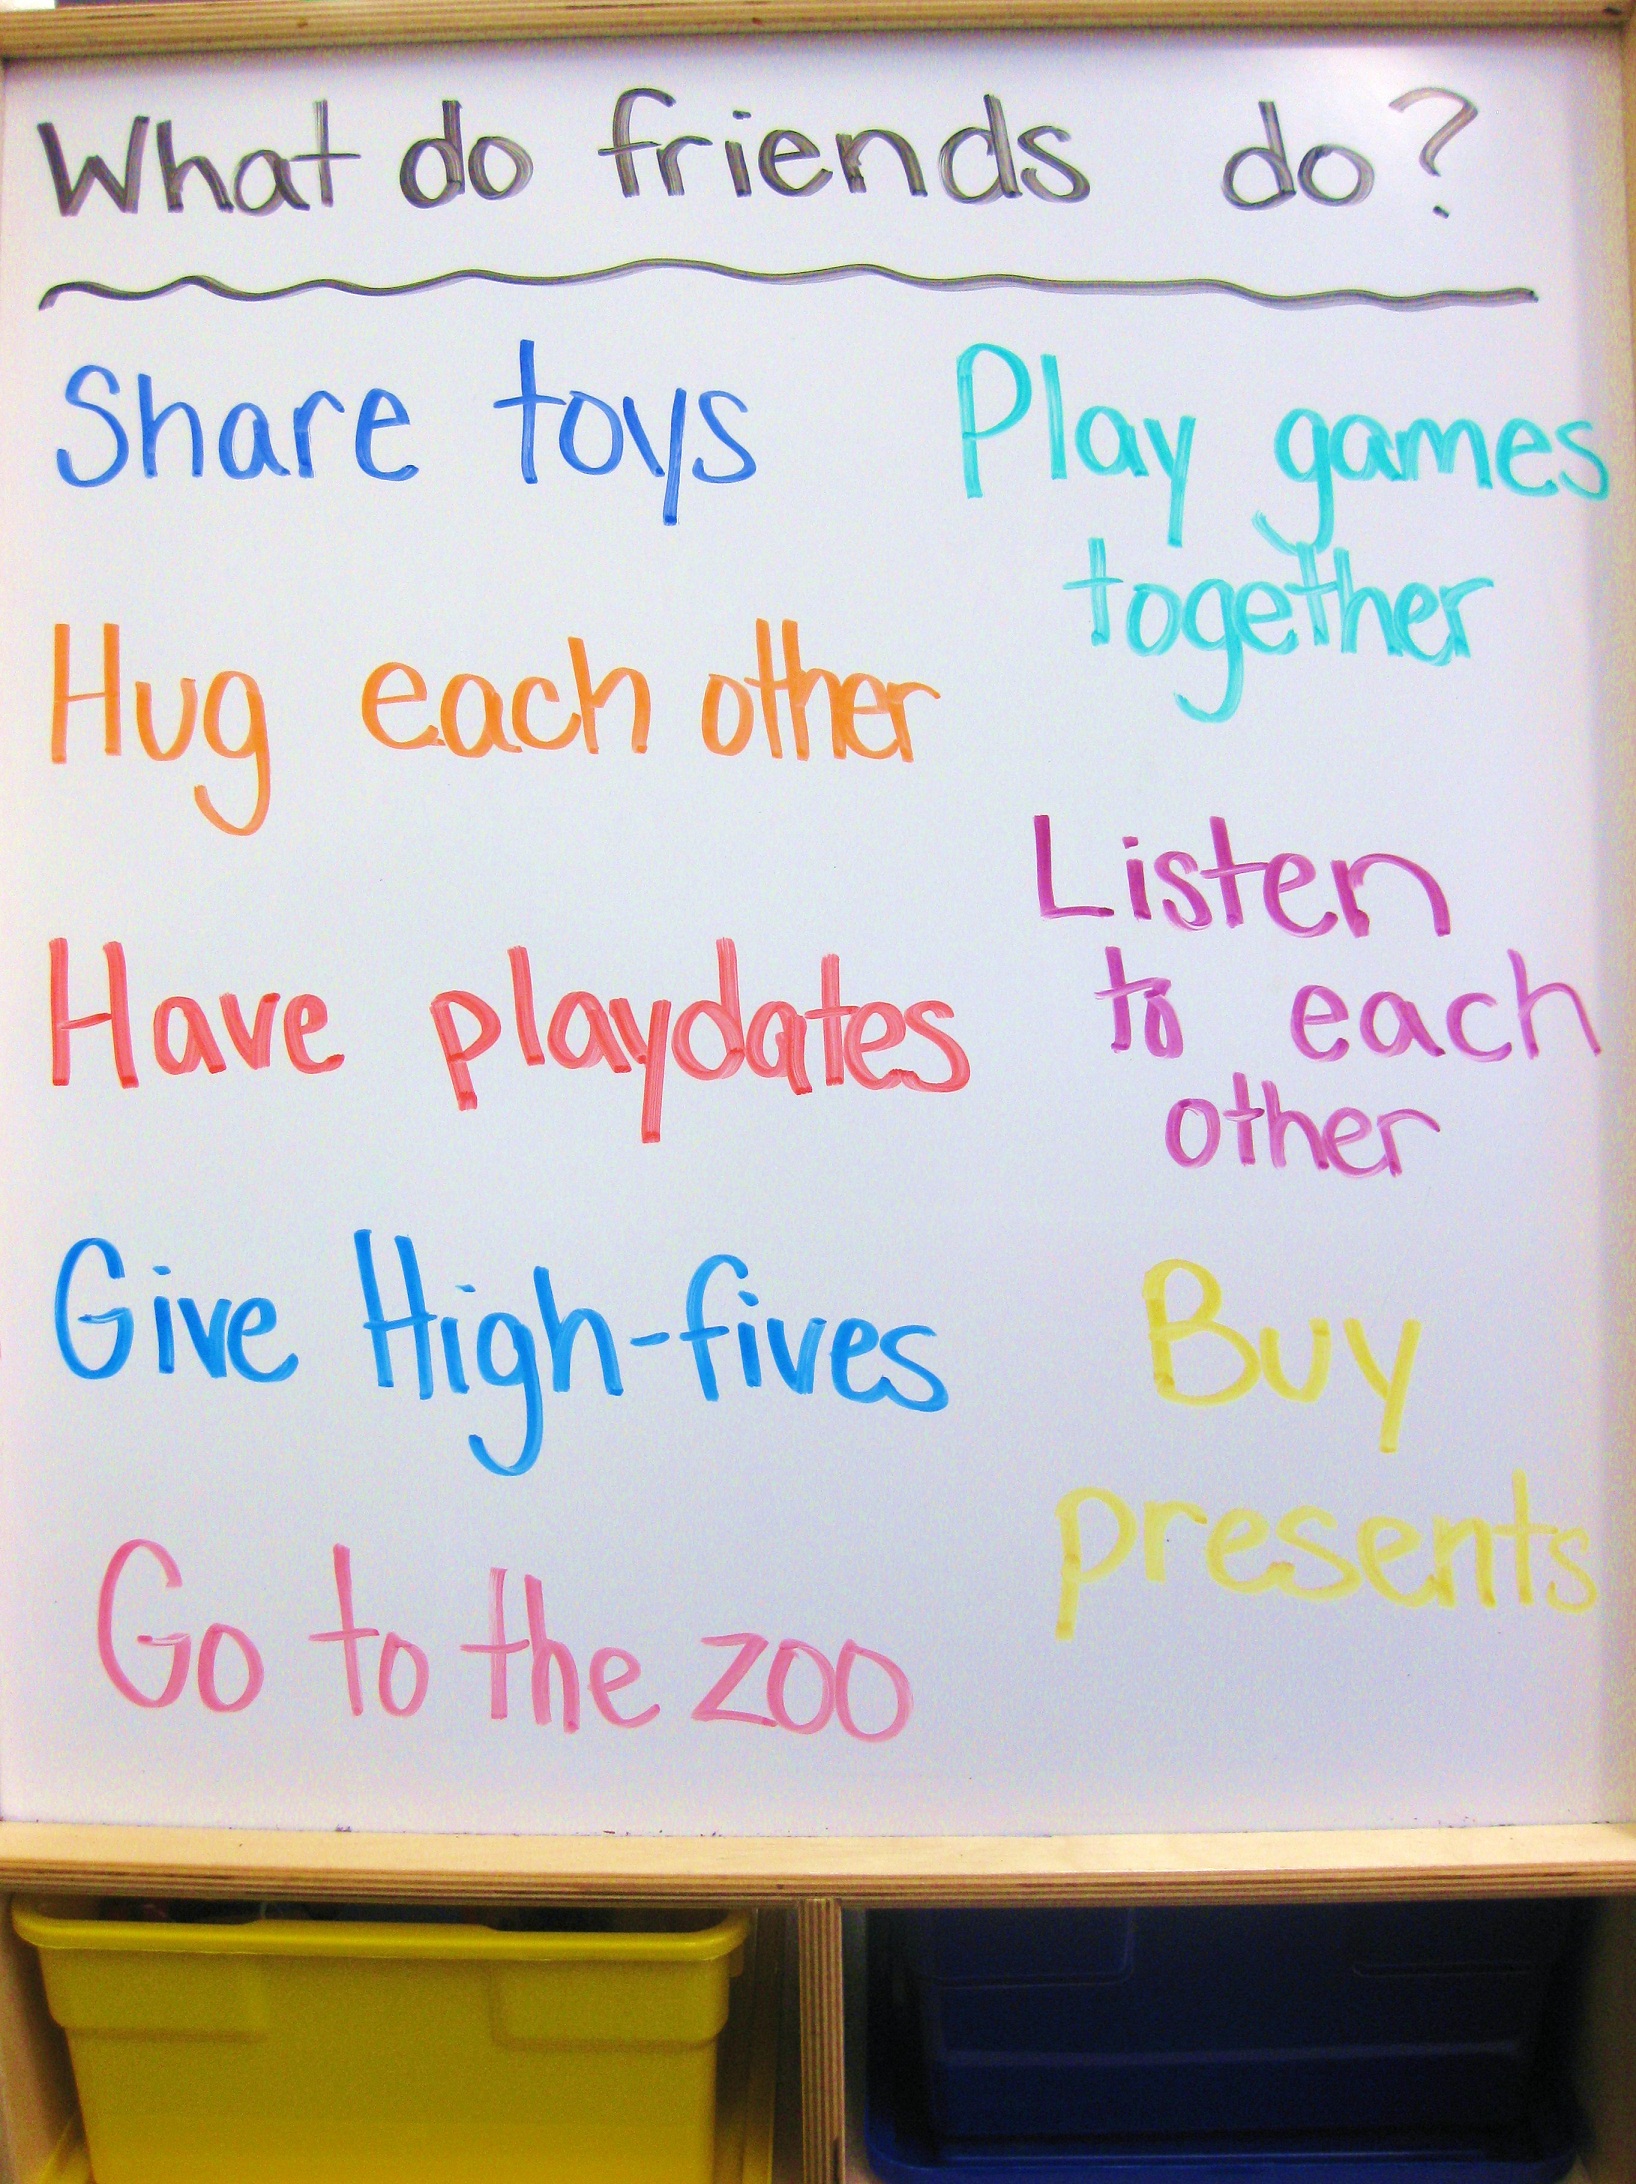 What do friends do?
Share toys
Hug each other
Have playdates
Give High-fives
Go to the zoo
Play games
together
Listen
to each
other
Buy
presents